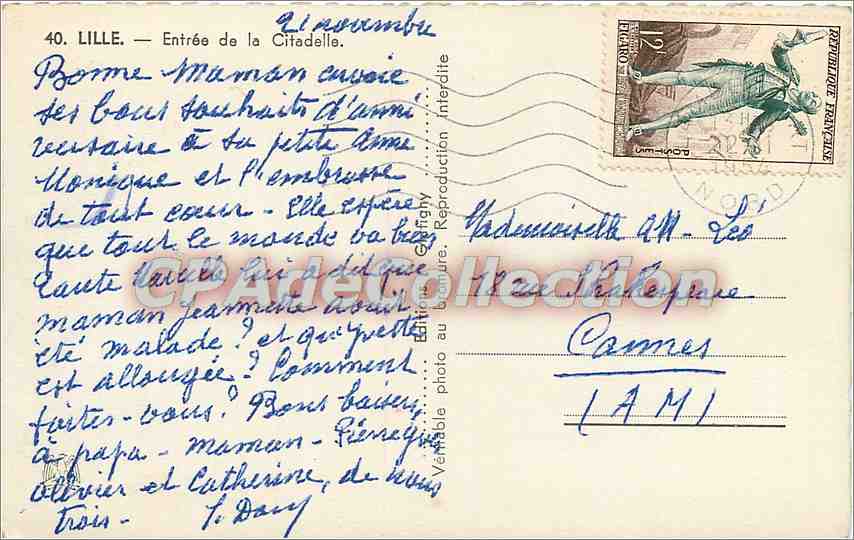 21 novembre
40. LILLE. — Entrée de la Citadelle.
Bonne Maman envoie
ses bons souhaits d'anni
versaire à sa petite Anne
Monique et l'embrasse
de tout cœur - Elle espère
que tout le monde va bien
tante Marcelle lui a dit que
maman Jeannette avait
été malade? et qu'Yvette
est allongée? Comment
faites-vous? Bons baisers
à papa - maman - Pierre Yves
Olivier et Catherine, de nous
trois -
Éditions Gaffigny
Véritable photo au bromure. Reproduction interdite
RÉPUBLIQUE FRANÇAISE
FIGARO
12F
POSTES
1954
NORD
Mademoiselle AM - Léo
18 rue Shakespeare
Cannes
(AM)
CPAdeCollection